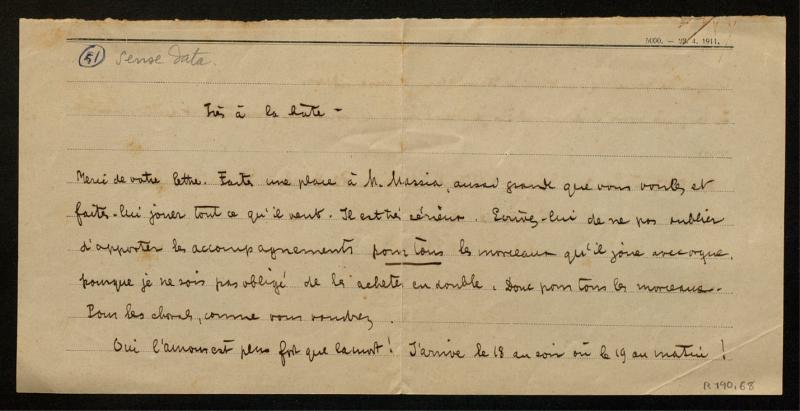 5000. — 22. 4. 1911.
51 sense data.
Très à la hâte —
Merci de votre lettre. Faites une place à M. Massia, aussi grande que vous voulez et
faites-lui jouer tout ce qu'il veut. Il est très sérieux. Ecrivez-lui de ne pas oublier
d'apporter les accompagnements pour tous les morceaux qu'il joue avec orgue,
pourque je ne sois pas obligé de les acheter en double. Donc pour tous les morceaux.
Pour les chorals, comme vous voudrez.
Oui l'amour est plus fort que la mort! J'arrive le 18 au soir où le 19 au matin!
R 190,68